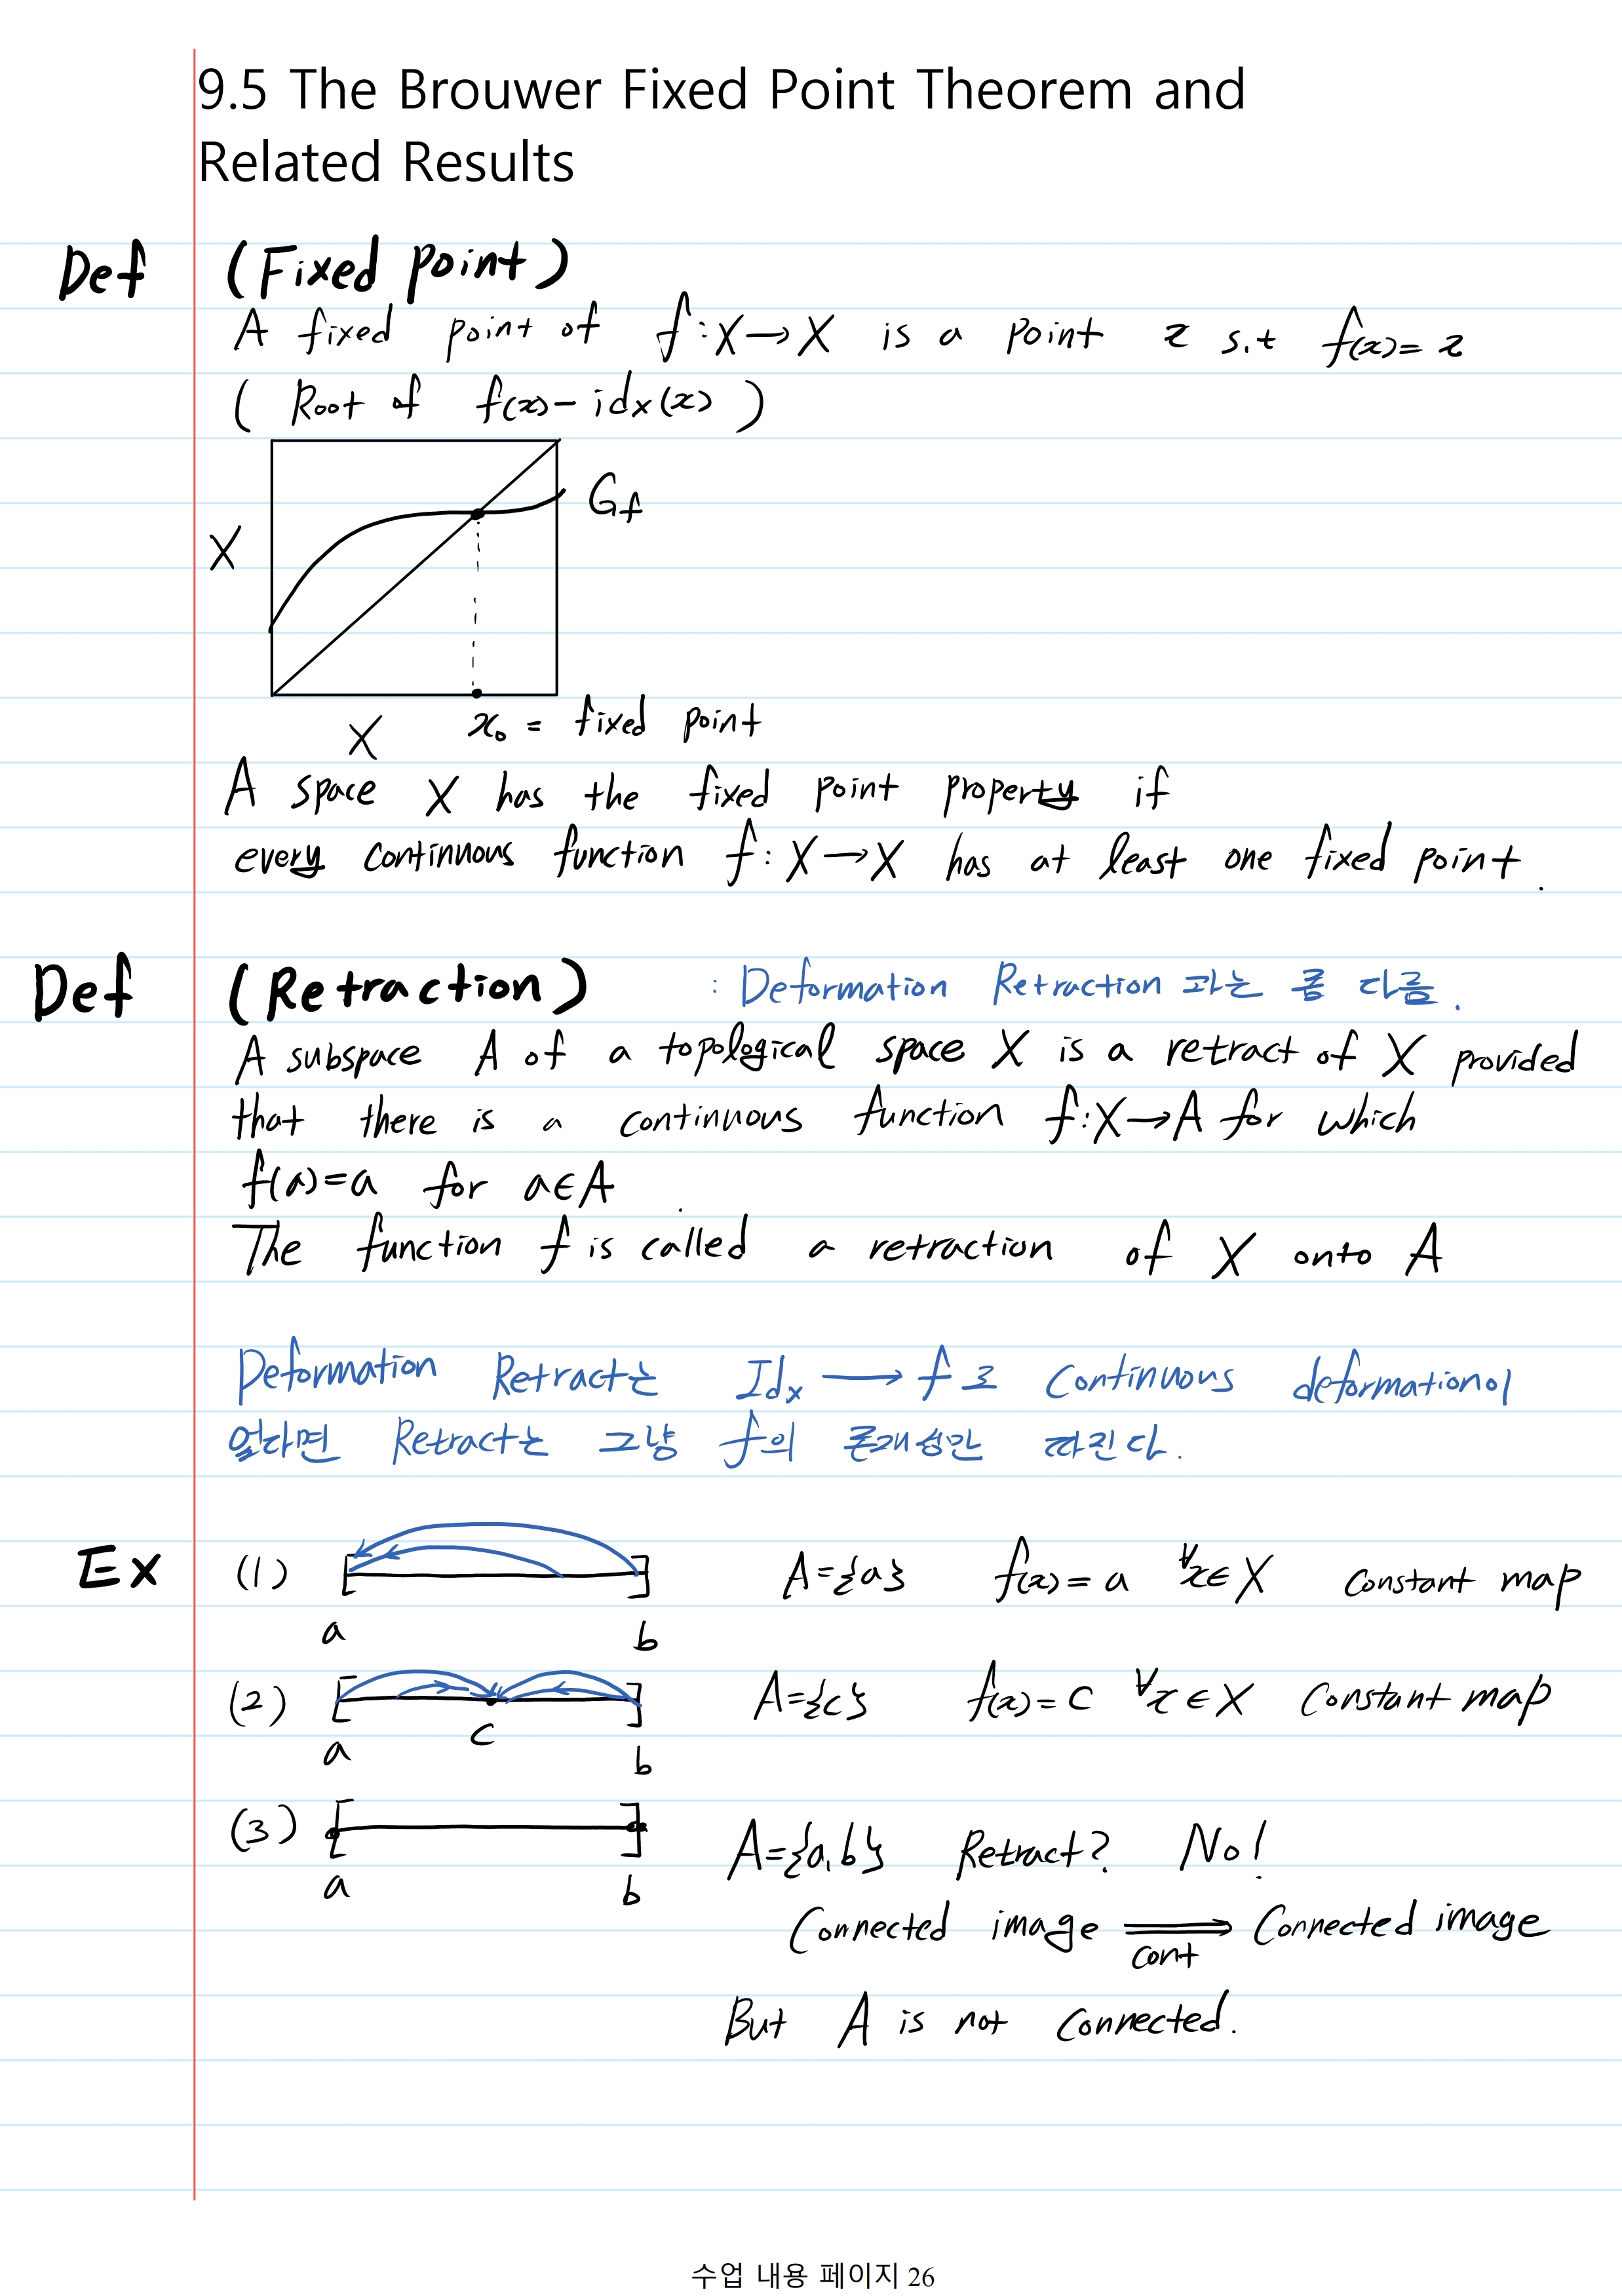 9.5 The Brouwer Fixed Point Theorem and
Related Results
Def (Fixed point)
A fixed point of f:X→X is a point x s.t f(x)=x
( Root of f(x)-idx(x) )
Gf
X
X x₀ = fixed point
A space X has the fixed point property if
every continuous function f:X→X has at least one fixed point.
Def (Retraction) : Deformation Retraction 과는 좀 다름.
A subspace A of a topological space X is a retract of X provided
that there is a continuous function f:X→A for which
f(a)=a for a∈A.
The function f is called a retraction of X onto A
Deformation Retract는 Idx → f 로 continuous deformation이
었다면 Retract는 그냥 f의 존재성만 따진다.
Ex (1) [ ] A={a} f(x)=a ∀x∈X constant map
a b
(2) [ ] A={c} f(x)=c ∀x∈X constant map
a c b
(3) [ ] A={a,b} Retract? No!
a b
Connected image ⟹ Connected image
cont
But A is not connected.
수업 내용 페이지 26